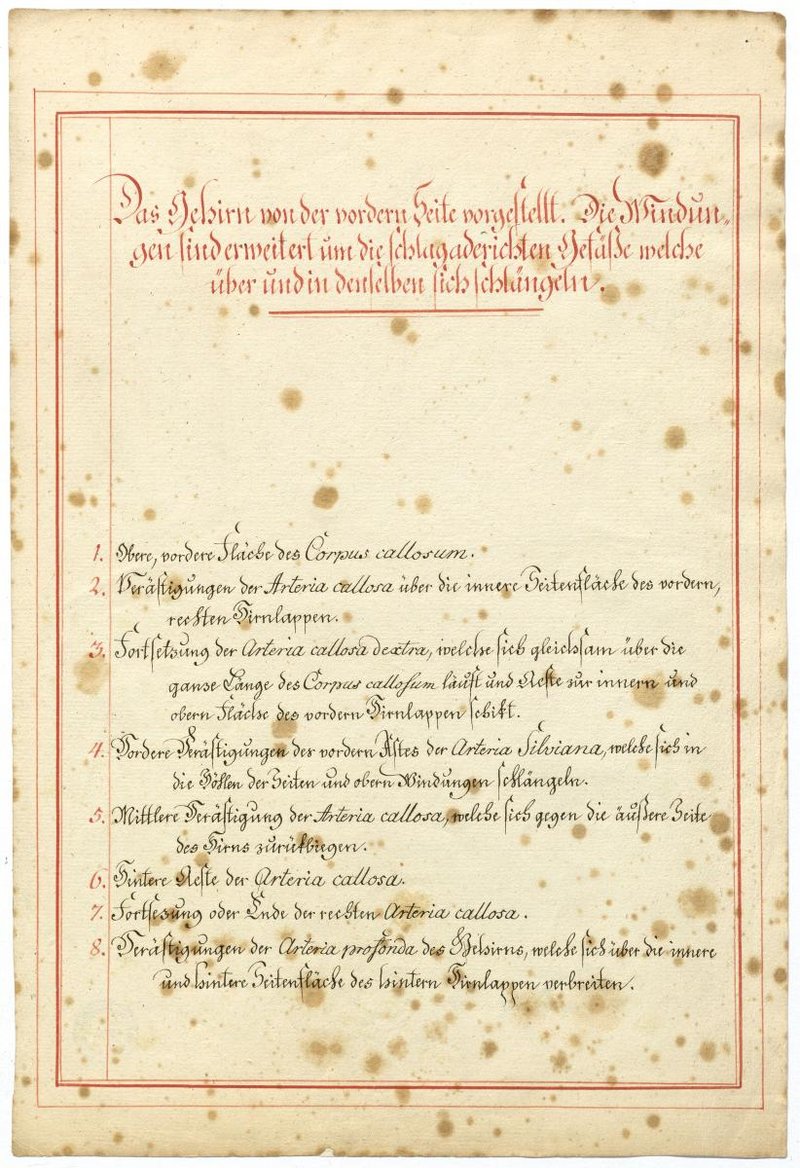 Das Gehirn von der vordern Seite vorgestellt. Die Windun-
gen sind erweitert um die schlagaderichten Gefäße welche
über und in denselben sich schlängeln.
1. Obere, vordere Fläche des Corpus callosum.
2. Verästigungen der Arteria callosa über die innere Seitenfläche des vordern,
rechten Hirnlappen.
3. Fortsetzung der Arteria callosa dextra, welche sich gleichsam über die
ganze Länge des Corpus callosum läuft und Aeste zur innern und
obern Fläche des vordern Hirnlappen schikt.
4. Vordere Verästigungen des vordern Astes der Arteria Silviana, welche sich in
die Höhlen der Seiten und obern Windungen schlängeln.
5. Mittlere Verästigung der Arteria callosa, welche sich gegen die äußere Seite
des Hirns zurükbiegen.
6. Hintere Aeste der Arteria callosa.
7. Fortsezung oder Ende der rechten Arteria callosa.
8. Verästigungen der Arteria profonda des Gehirns, welche sich über die innere
und hintere Seitenfläche des hintern Hirnlappen verbreiten.